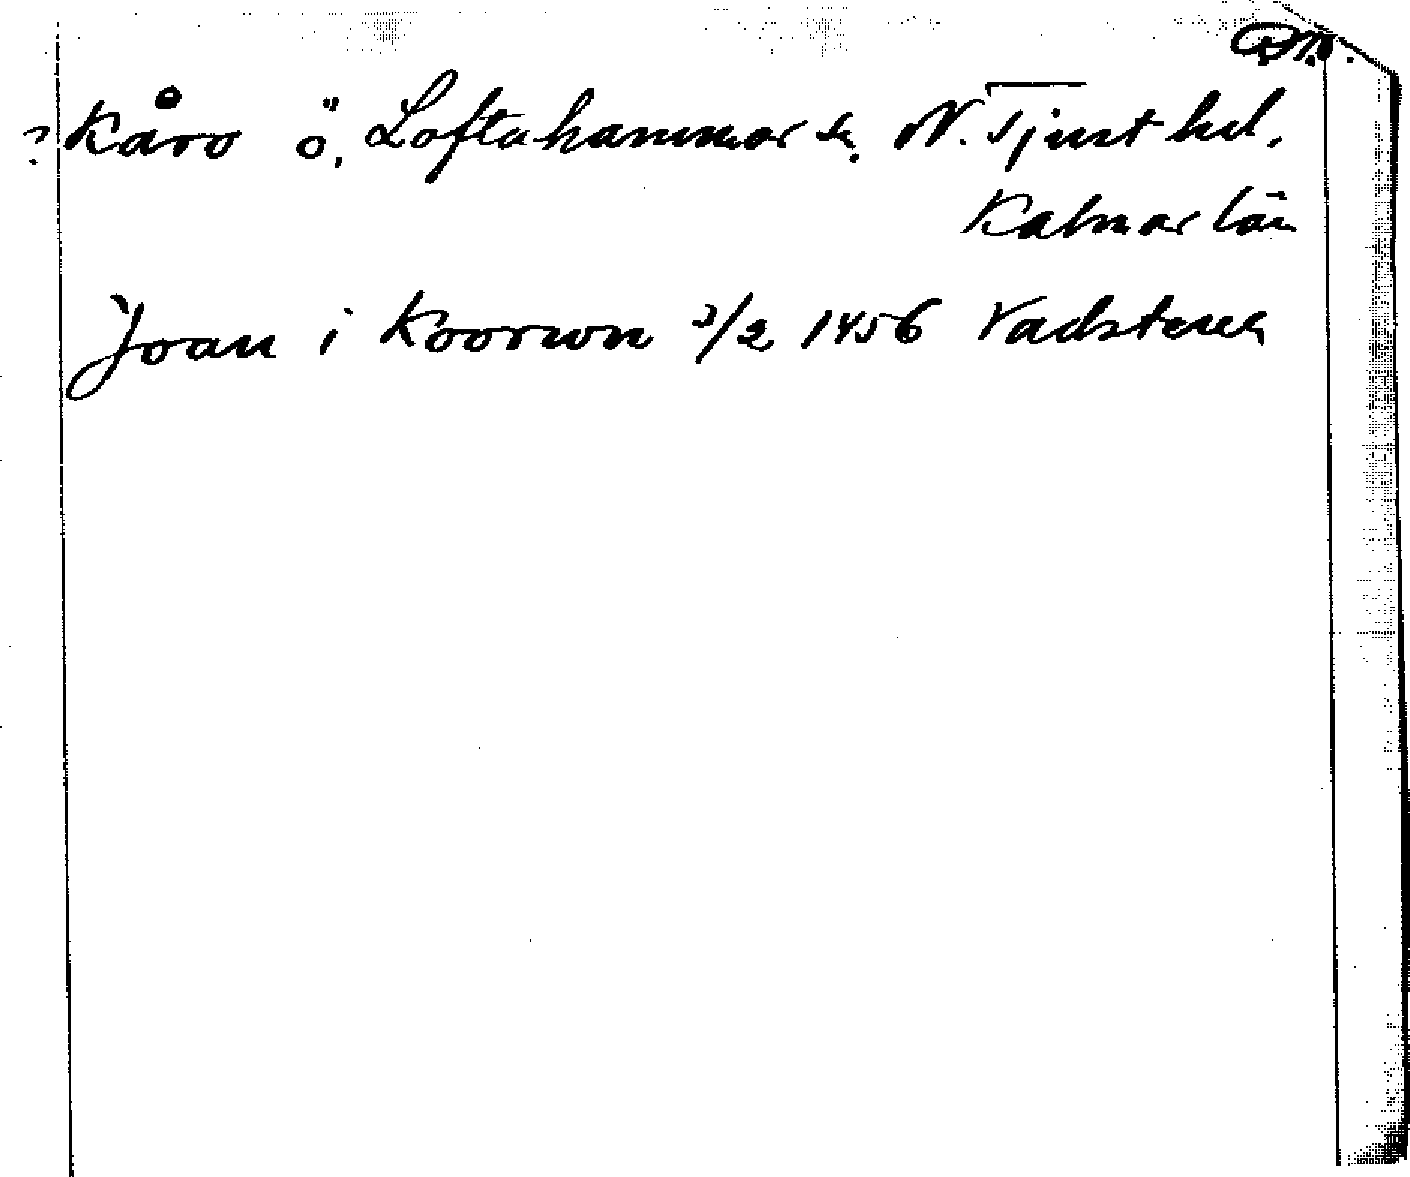 ? Kåro ö, Loftahammar sn. N. Tjust hd.
Kalmar län
Joan i Koorwn 3/2 1456 Vadstena